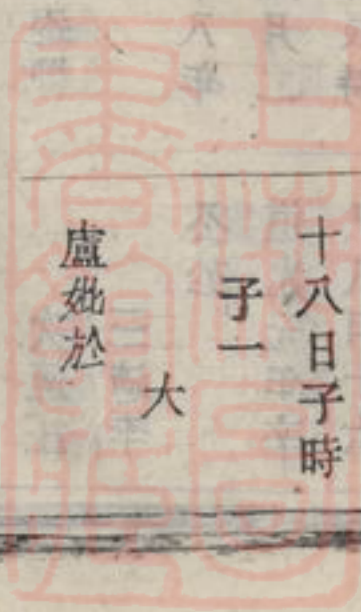 十八日子時
子一
大
盧妣於